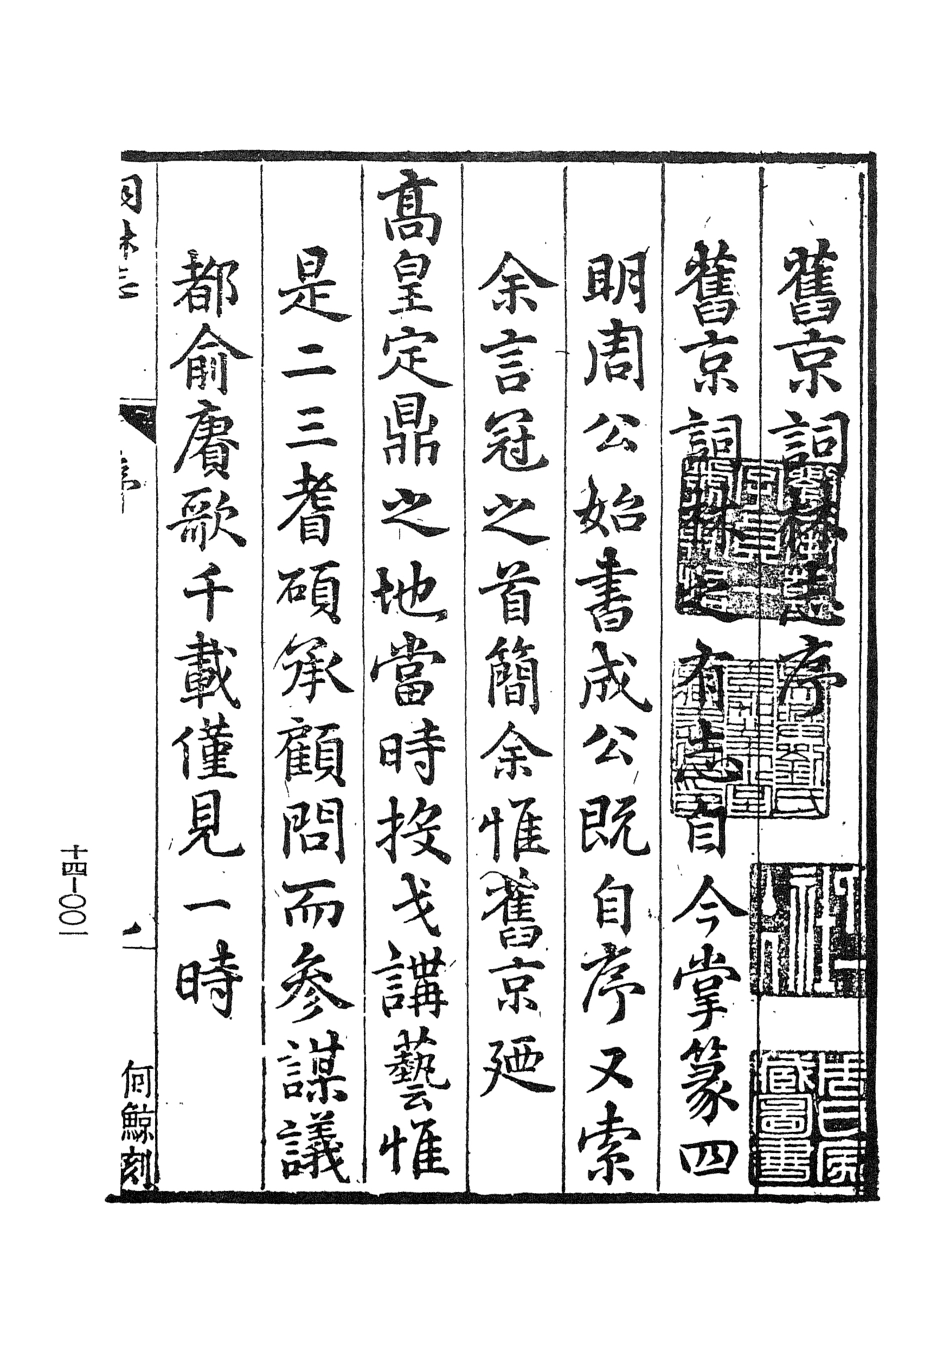 舊京詞林志序
舊京詞林之有志自今掌篆四
明周公始書成公既自序又索
余言冠之首簡余惟舊京廼
高皇定鼎之地當時投戈講藝惟
是二三耆碩承顧問而參謀議
都俞賡歌千載僅見一時
詞林志
序
一
何鯨刻
十四-〇〇一